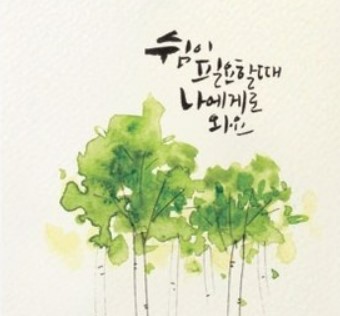 쉼이
필요할때
나에게로
와요